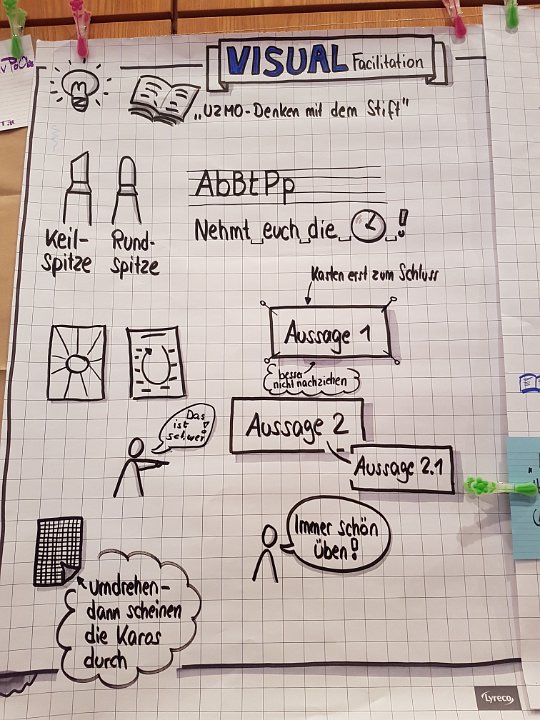 VISUAL Facilitation
„UZMO-Denken mit dem Stift"
AbBtPp
Keil-
Spitze
Rund-
Spitze
Nehmt_euch_die_ _!
Karten erst zum Schluss
Aussage 1
besser
nicht nachziehen
Das
ist
schwer!
Aussage 2
Aussage 2.1
Immer schön
üben!
umdrehen-
dann scheinen
die Karos
durch
Lyreco